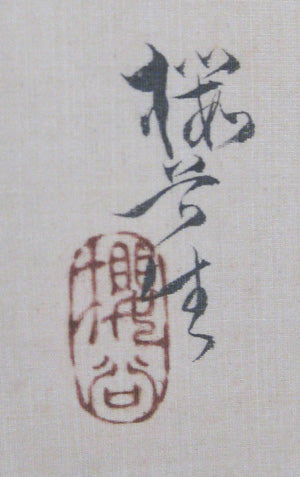 櫻谷生
櫻谷